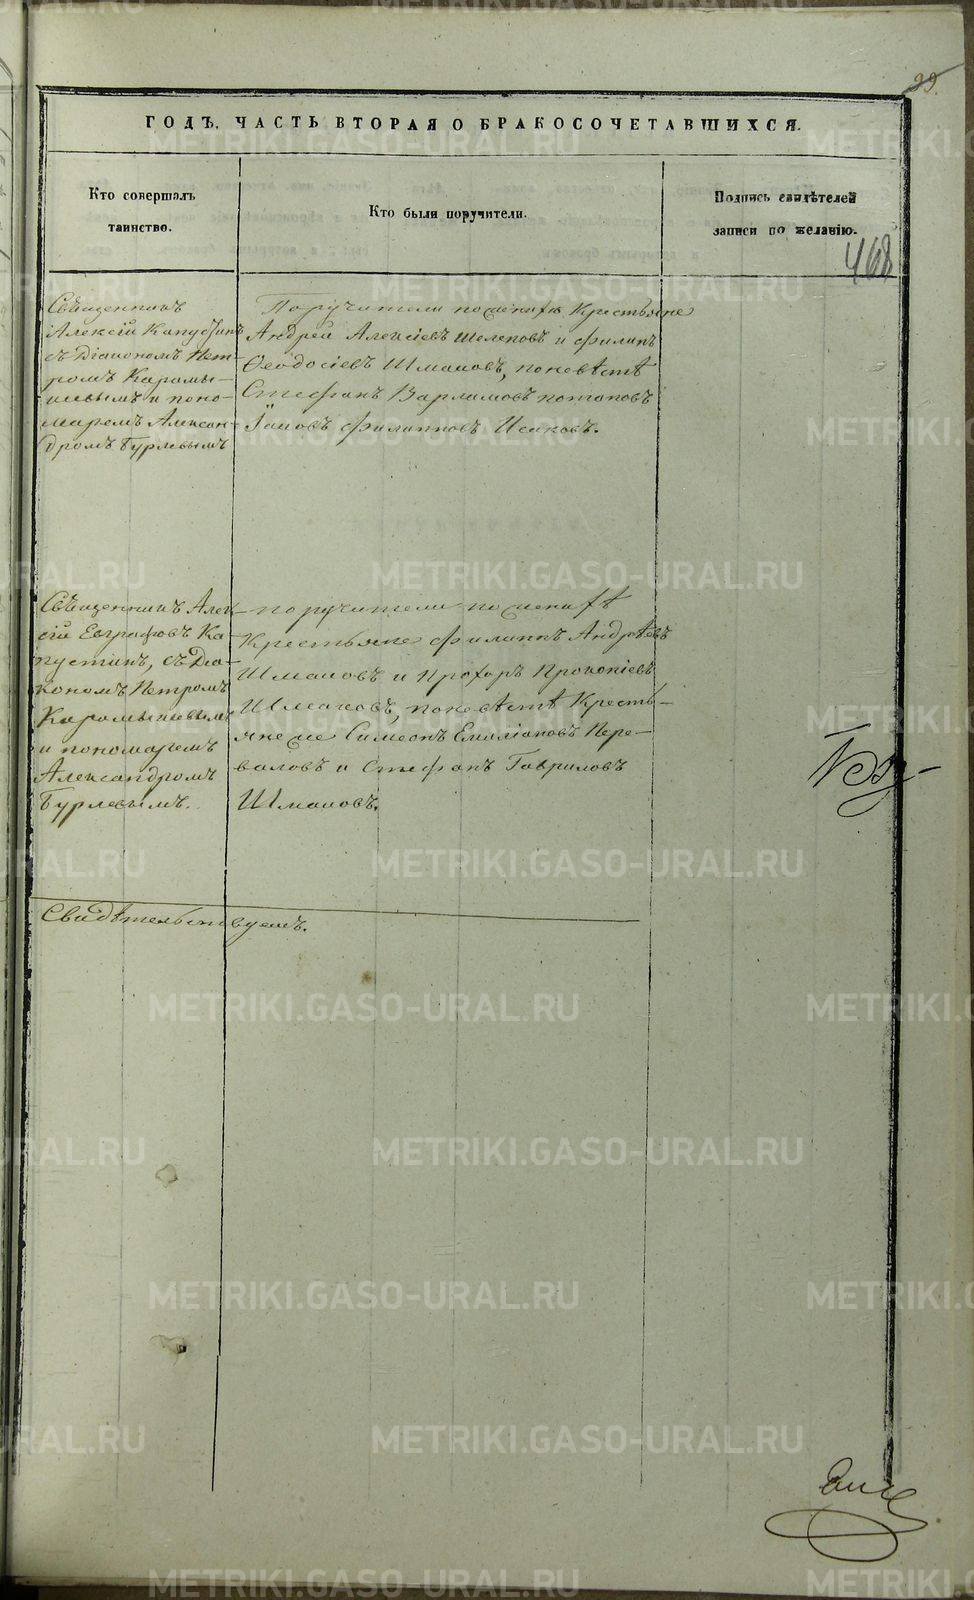 99.
ГОДЪ. ЧАСТЬ ВТОРАЯ О БРАКОСОЧЕТАВШИХСЯ.
Кто совершалъ
таинство.
Кто были поручители.
Подпись свидѣтелей
записи по желанію.
468
Священникъ
Алексій Капустинъ
съ Діакономъ Пет-
ромъ Карамы-
шевымъ и поно-
маремъ Алексан-
дромъ Бурлевымъ
Поручители по женихѣ Крестьяне
Андрей Алексіевъ Шелеповъ и Филипъ
Ѳеодосіевъ Шмаковъ, по невѣстѣ
Стефанъ Варламовъ Потаповъ
Іаковъ Филипповъ Исаковъ.
Священникъ Алек-
сій Евграфовъ Ка-
пустинъ, съ Діа-
кономъ Петромъ
Карамышевымъ
и пономаремъ
Александромъ
Бурлевымъ.
поручители по женихѣ
Крестьяне Филиппъ Андрѣевъ
Шмаковъ и Прохоръ Прокопіевъ
Шмаковъ, по невѣстѣ Кресть-
яне же Симеонъ Емиліановъ Пере-
валовъ и Стефанъ Гавриловъ
Шмаковъ.
Свидѣтельствуемъ.
METRIKI.GASO-URAL.RU